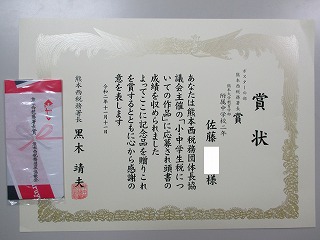 賞状
ポスターの部
熊本西税務署長賞
附属中学校 二年
佐藤 様
あなたは熊本西税務団体長協
議会主催の「小中学生税につ
いての作品」に応募され頭書の
成績を収められました
よってここに記念品を贈りこれ
を賞するとともに心から感謝の
意を表します
令和二年十二月十一日
熊本西税務署長
黒木靖夫